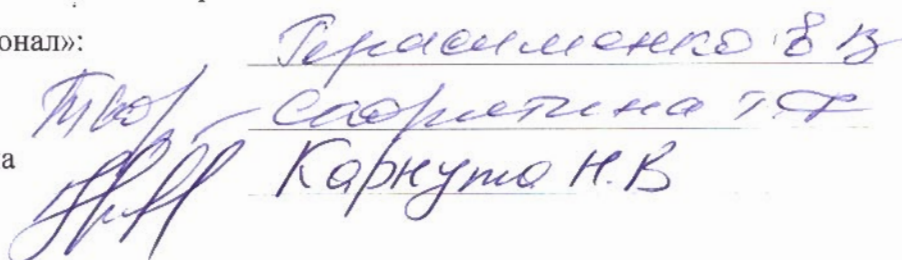 онал»: Герасименко Е В
Сабрятина Т.Ф
а Карнута Н.В